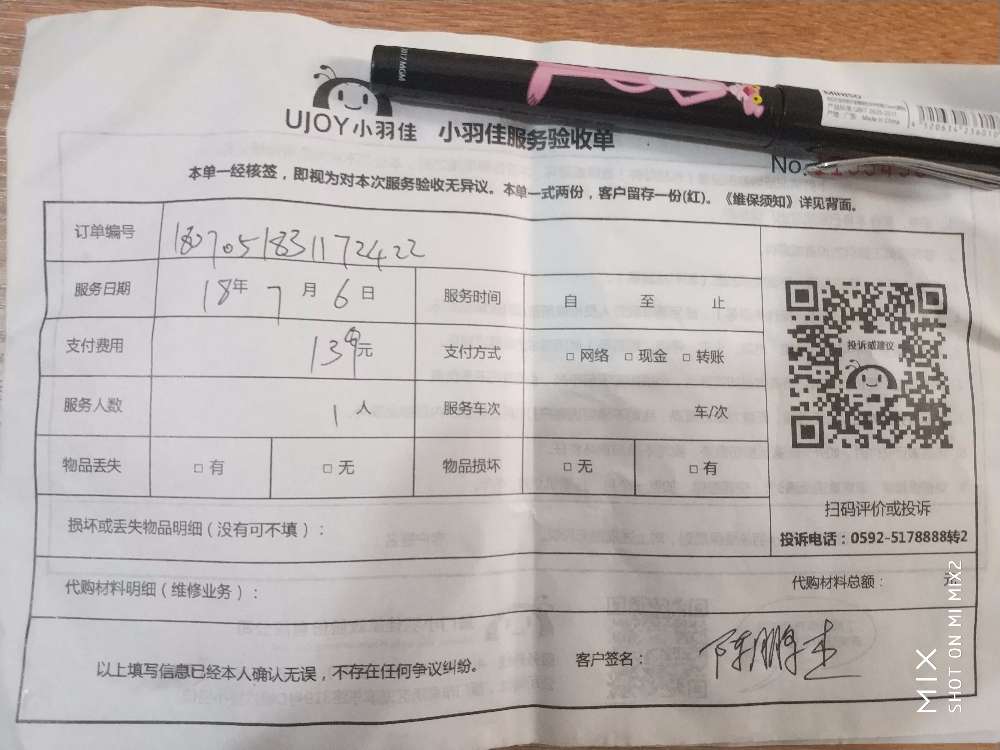 UJOY小羽佳 小羽佳服务验收单
No.
本单一经核签，即视为对本次服务验收无异议。本单一式两份，客户留存一份(红)。《维保须知》详见背面。
订单编号 1807051831172422
服务日期 18年 7月 6日 服务时间 自 至 止
支付费用 元 支付方式 □网络 □现金 □转账
服务人数 1人 服务车次 车/次
物品丢失 □有 □无 物品损坏 □无 □有
投诉或建议
扫码评价或投诉
投诉电话：0592-5178888转2
损坏或丢失物品明细（没有可不填）：
代购材料明细（维修业务）： 代购材料总额： 元
以上填写信息已经本人确认无误，不存在任何争议纠纷。 客户签名： 陈鹏杰
MINISO
Made in China
MIX
SHOT ON MI MIX2